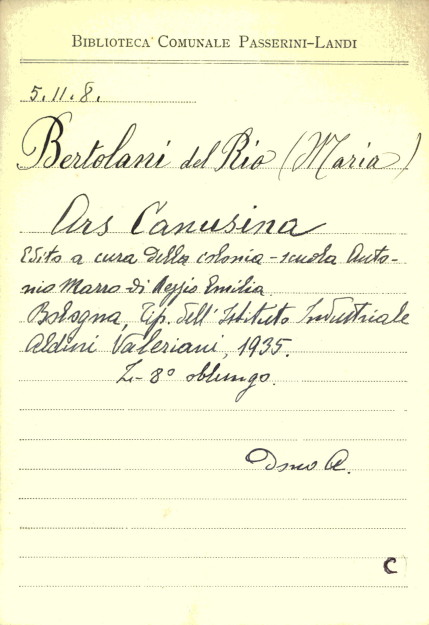 BIBLIOTECA COMUNALE PASSERINI-LANDI
5.11.8.
Bertolani del Rio (Maria)
Ars Canusina
Edito a cura della colonia-scuola Anto-
nio Marro di Reggio Emilia
Bologna, Tip. dell' Istituto Industriale
Aldini Valeriani, 1935.
8° oblungo.
C